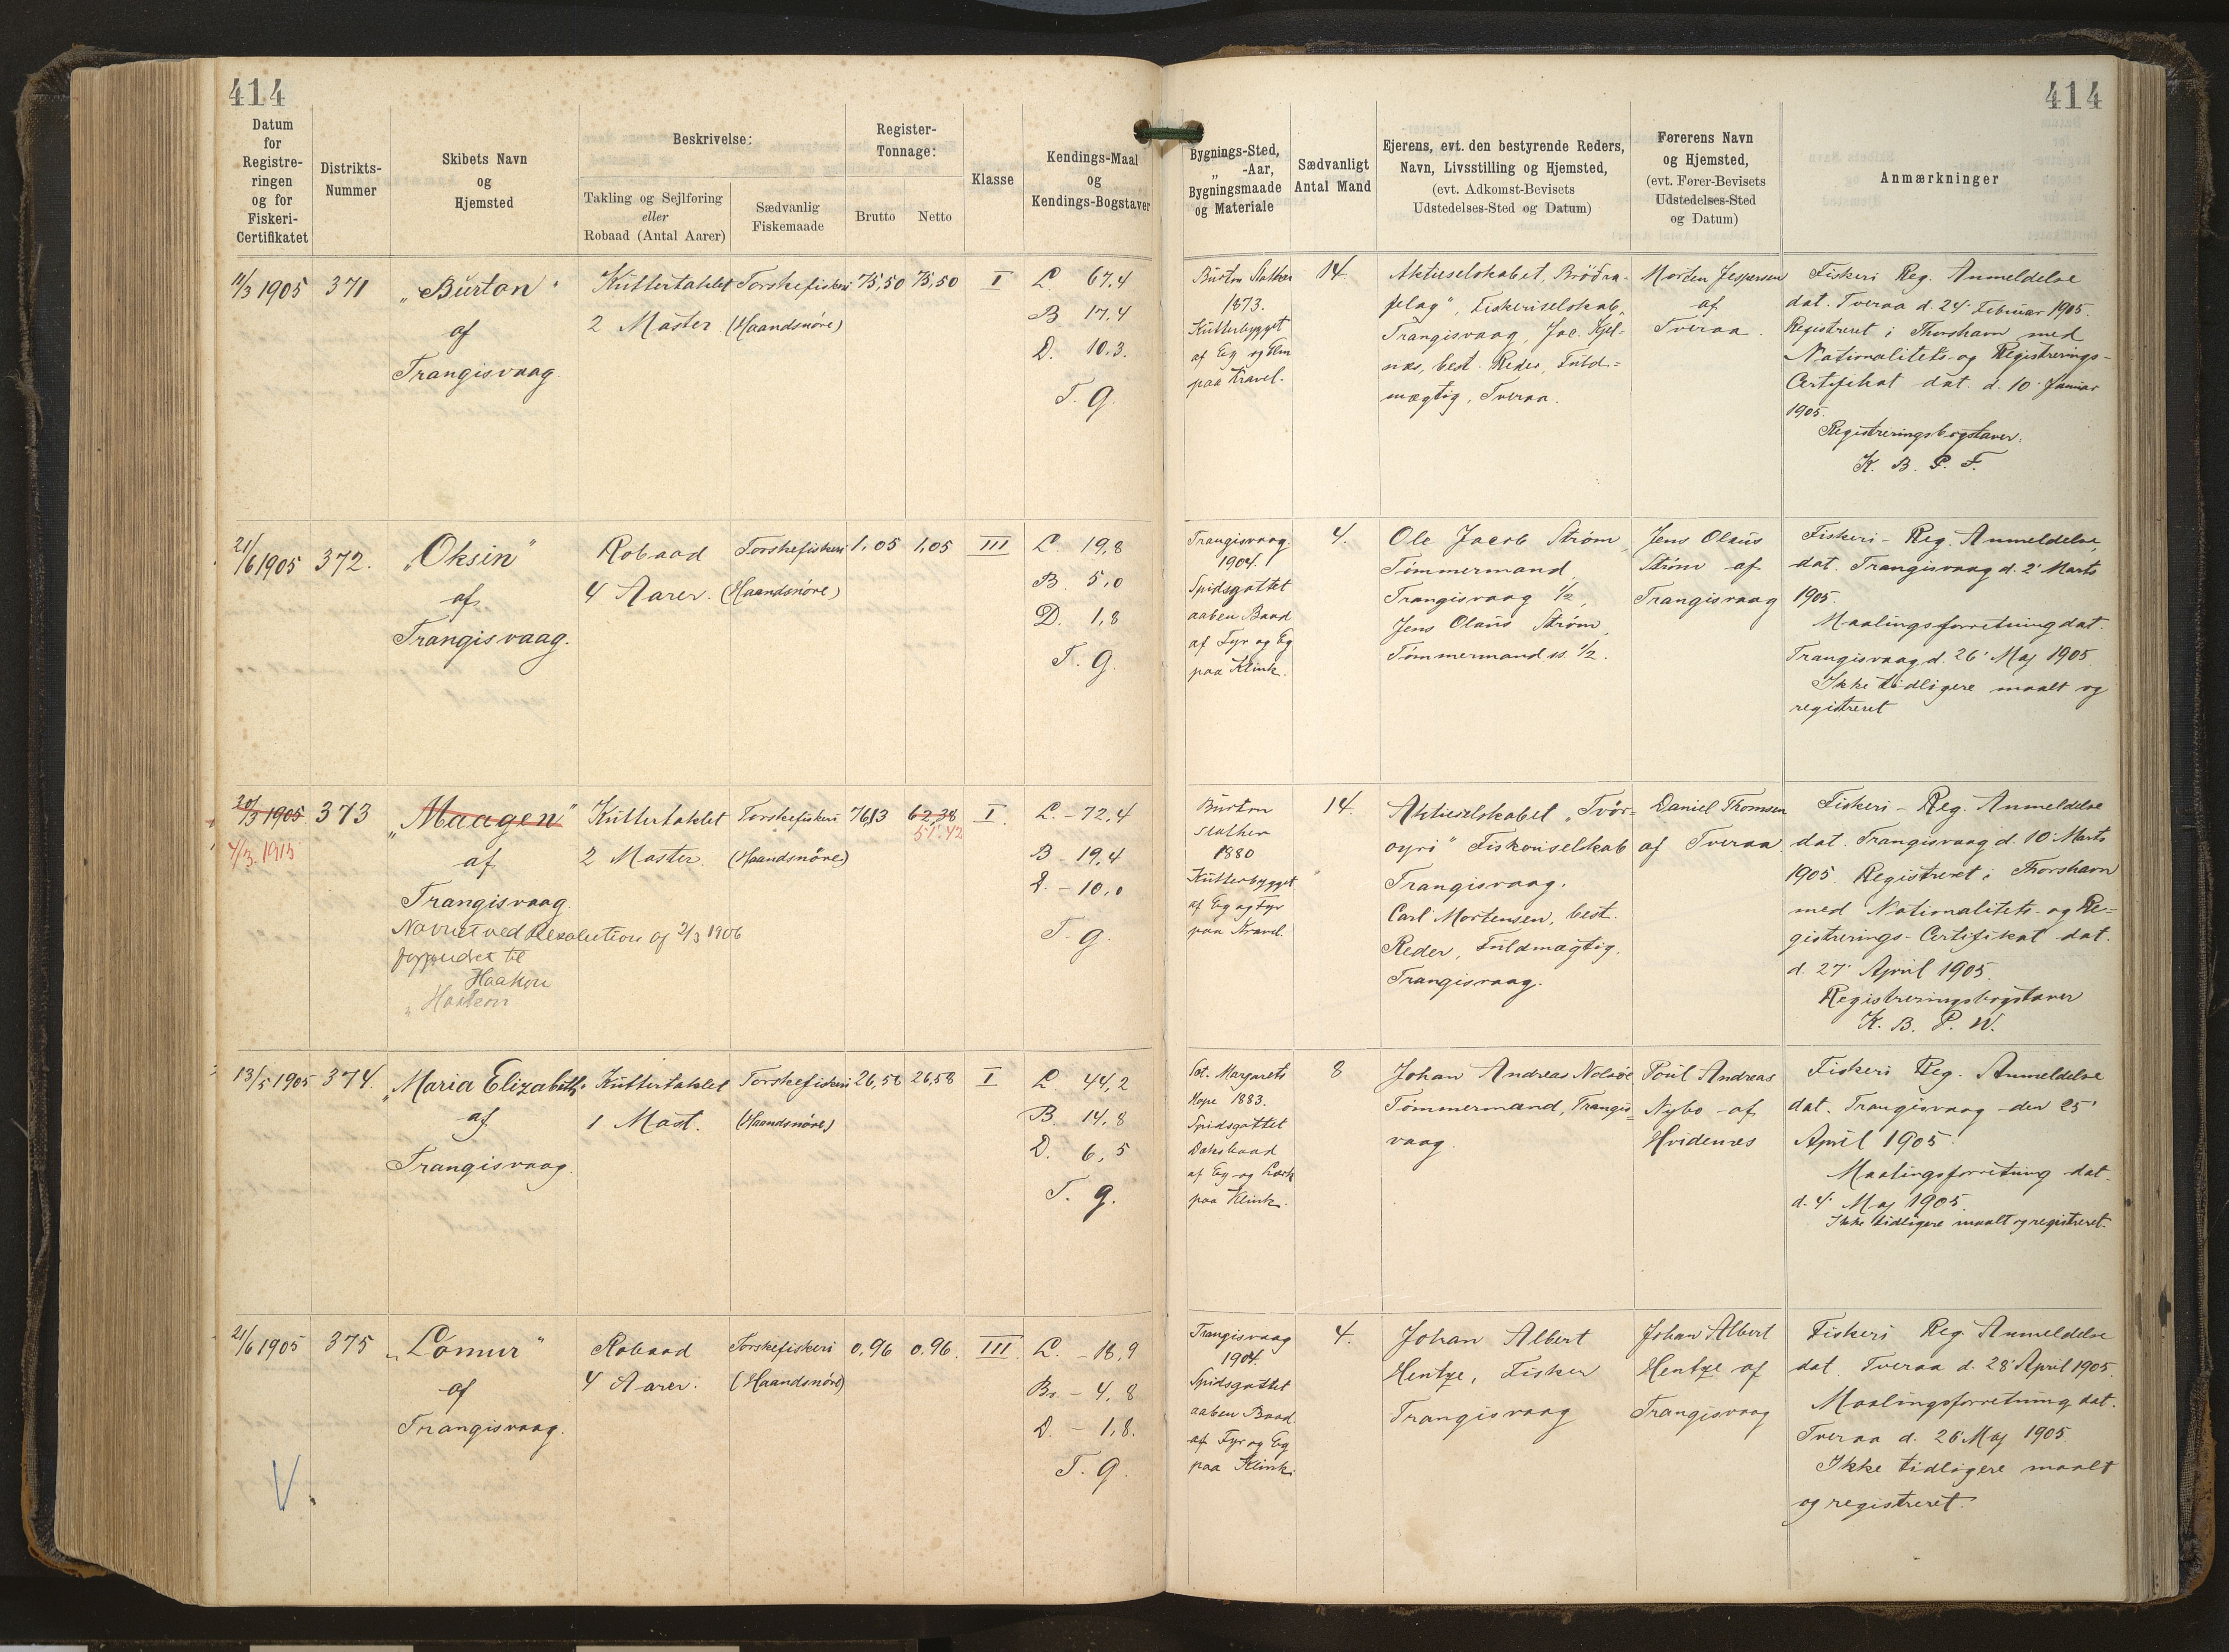 414
414
Datum
for
Registre-
ringen
og for
Fiskeri-
Certifikatet
Distrikts-
Nummer
Skibets Navn
og
Hjemsted
Beskrivelse:
Takling og Sejlføring
eller
Robaad (Antal Aarer)
Sædvanlig
Fiskemaade
Register-
Tonnage:
Brutto
Netto
Klasse
Kendings-Maal
og
Kendings-Bogstaver
Bygnings-Sted,
„ -Aar,
Bygningsmaade
og Materiale
Sædvanligt
Antal Mand
Ejerens, evt. den bestyrende Reders,
Navn, Livsstilling og Hjemsted,
(evt. Adkomst-Bevisets
Udstedelses-Sted og Datum)
Førerens Navn
og Hjemsted,
(evt. Fører-Bevisets
Udstedelses-Sted
og Datum)
Anmærkninger
11/3 1905
371
„Burton"
af
Trangisvaag
Kuttertaklet
2 Master
Torskefiskeri
(Haandsnøre)
75,50
75,50
I
L. 67,4
B 17,4
D. 10,3.
T. G.
Burton Stather
1873.
Kutterbygget
af Eg og Elm
paa Kravel.
14.
Aktieselskabet „Brödra-
felag", Fiskeriselskab,
Trangisvaag, Jac. Kjøl-
næs, best. Reder, Fuld-
mægtig, Tveraa.
Morten Jespersen
af
Tveraa.
Fiskeri Reg. Anmeldelse
dat. Tveraa d. 24' Februar 1905.
Registreret i Thorshavn med
Nationalitets- og Registrerings-
Certifikat dat. d. 10' Januar
1905.
Registreringsbogstaver:
K. B. P. F.
21/6 1905
372.
„Oksin"
af
Trangisvaag.
Robaad
4 Aarer.
Torskefiskeri
(Haandsnøre)
1,05
1,05
III
L. 19,8
B. 5,0
D. 1,8
T. G.
Trangisvaag.
1904.
Spidsgattet
aaben Baad
af Fyr og Eg
paa Klink.
4.
Ole Jacob Strøm,
Tømmermand
Trangisvaag 1/2,
Jens Olaus Strøm,
Tømmermand ss. 1/2.
Jens Olaus
Strøm af
Trangisvaag
Fiskeri- Reg. Anmeldelse
dat. Trangisvaag d. 2' Marts
1905.
Maalingsforretning dat.
Trangisvaag d. 26' Maj 1905.
Ikke tidligere maalt og
registreret
20/3 1905
4/3. 1915
373
„Maagen"
af
Trangisvaag.
Navnet ved Resolution af 2/3 1906
forandret til
Haakon
„Haakon
Kuttertaklet
2 Master.
Torskefiskeri
(Haandsnøre)
76,13
62,38
51.42
I.
L. - 72,4
B - 19,4
D. - 10,0
T. G.
Burton
Stather
1880
Kutterbygget
af Eg og Fyr
paa Kravel.
14.
Aktieselskabet „Tvör-
oyri" Fiskeriselskab
Trangisvaag.
Carl Mortensen, best.
Reder, Fuldmægtig.
Trangisvaag.
Daniel Thomsen
af Tveraa
Fiskeri - Reg. Anmeldelse
dat. Trangisvaag d. 10' Marts
1905. Registreret i Thorshavn
med Nationalitets- og Re-
gistrerings- Certifikat dat.
d. 27' April 1905.
Registreringsbogstaver
K. B. P. W.
13/5 1905
374.
„Maria Elizabeth"
af
Trangisvaag.
Kuttertaklet
1 Mast.
Torskefiskeri
(Haandsnøre)
26,58
26,58
I
L 44,2
B. 14,8
D. 6,5
T. G.
Sct. Margarets
Hope 1883.
Spidsgattet
Dæksbaad
af Eg og Lærk
paa Klink.
8
Johan Andreas Nolsöe
Tømmermand, Trangis-
vaag.
Poul Andreas
Nybo af
Hvidenæs
Fiskeri Reg. Anmeldelse
dat. Trangisvaag den 25'
April 1905.
Maalingsforretning dat.
d. 4' Maj 1905.
Ikke tidligere maalt og registreret.
21/6 1905
375
„Lómur"
af
Trangisvaag.
Robaad
4 Aarer.
Torskefiskeri
(Haandsnøre)
0,96
0.96.
III.
L. - 18,9
Br. - 4,8
D. - 1,8.
T. G.
Trangisvaag
1904.
Spidsgattet
aaben Baad
af Fyr og Eg
paa Klink.
4.
Johan Albert
Hentze, Fisker
Trangisvaag
Johan Albert
Hentze af
Trangisvaag
Fiskeri Reg. Anmeldelse
dat. Tveraa d. 28' April 1905.
Maalingsforretning dat.
Tveraa d. 26' Maj 1905.
Ikke tidligere maalt
og registreret.
V.